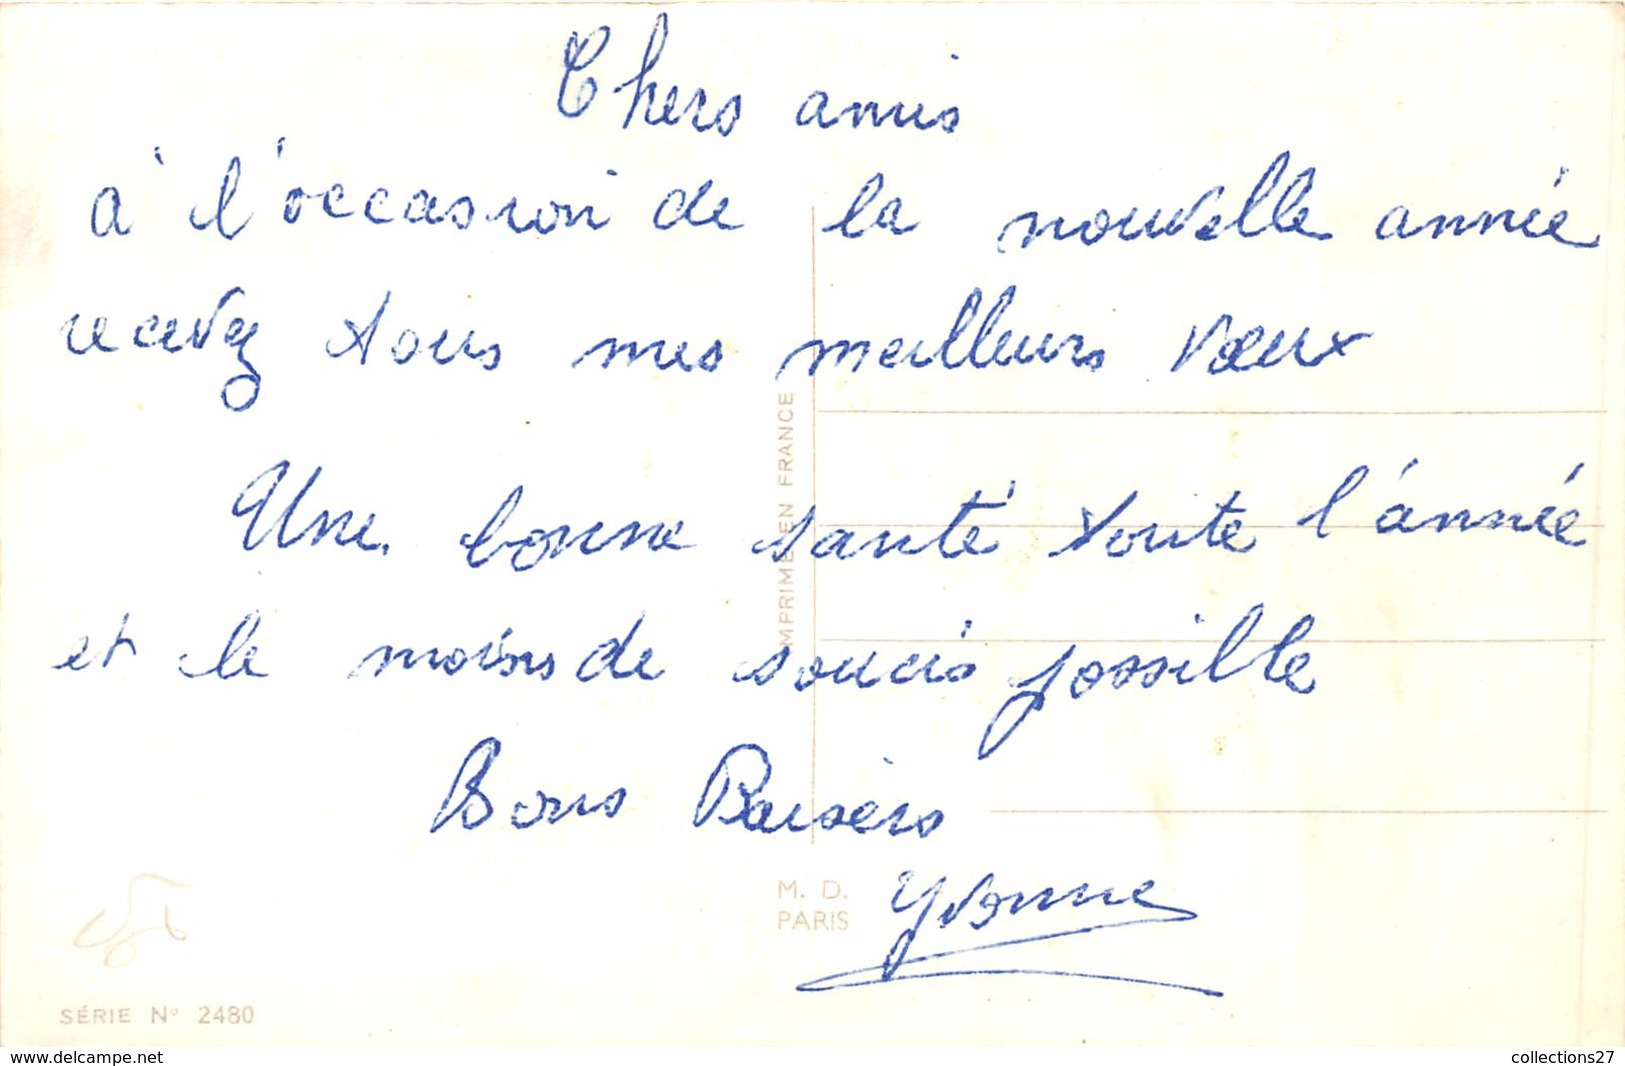 Chers amis
à l'occasion de la nouvelle année
recevez tous mes meilleurs vœux
Une bonne santé toute l'année
et le moins de soucis possible
Bons Baisers
Yvonne
IMPRIMÉ EN FRANCE
M. D.
PARIS
SÉRIE N° 2480
www.delcampe.net
collections27